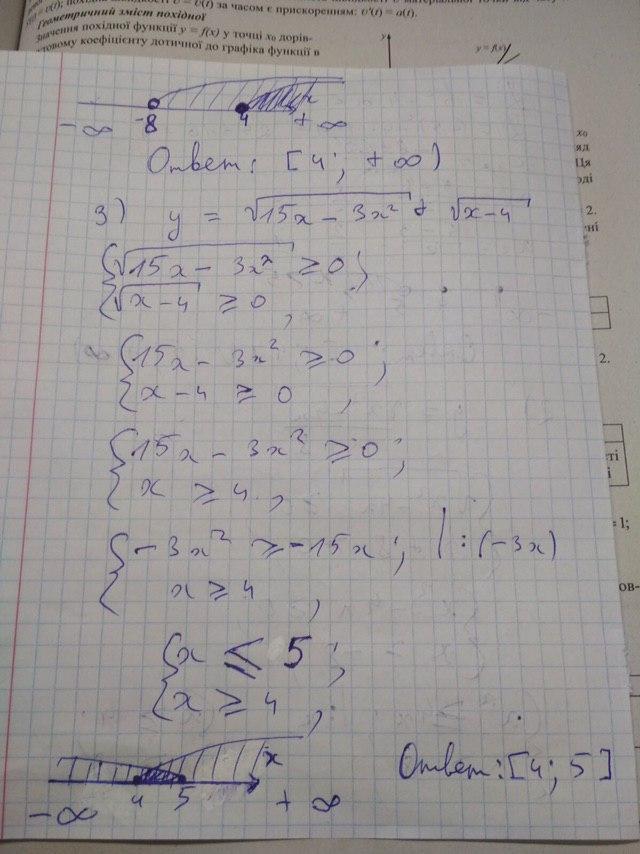 v = v(t) за часом є прискоренням: v'(t) = a(t).
Геометричний зміст похідної
Значення похідної функції y = f(x) у точці x₀ дорів-
товому коефіцієнту дотичної до графіка функції в
y
y = f(x)
x
-∞ -8 4 +∞
Ответ: [4; +∞)
3) y = √15x - 3x² + √x-4
{ √15x - 3x² ≥ 0;
√x-4 ≥ 0,
{ 15x - 3x² ≥ 0;
x - 4 ≥ 0,
{ 15x - 3x² ≥ 0;
x ≥ 4,
{ -3x² ≥ -15x; | : (-3x)
x ≥ 4,
{ x ≤ 5;
x ≥ 4,
x
-∞ 4 5 +∞
Ответ: [4; 5]
x₀
яд
Ця
оді
2.
ені
2.
еті
і
=1;
ов-